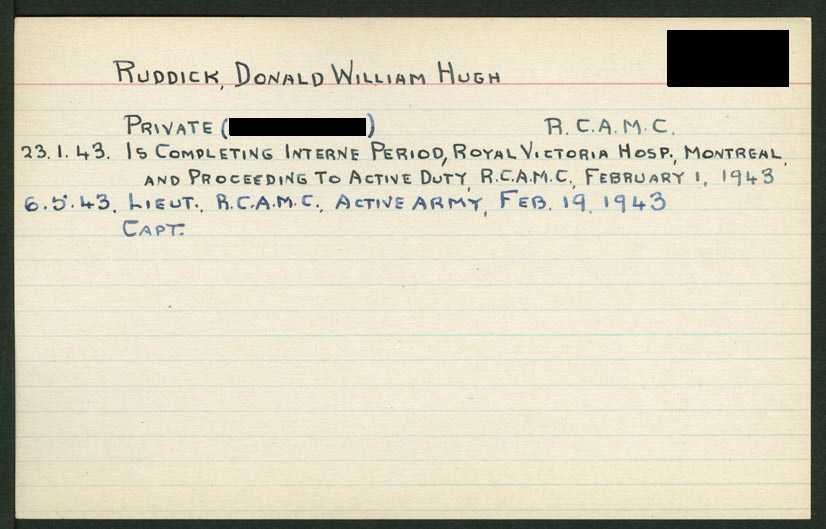 RUDDICK, DONALD WILLIAM HUGH
PRIVATE ( ) R.C.A.M.C.
23.1.43. IS COMPLETING INTERNE PERIOD, ROYAL VICTORIA HOSP., MONTREAL,
AND PROCEEDING TO ACTIVE DUTY, R.C.A.M.C., FEBRUARY 1, 1943
6.5.43. LIEUT., R.C.A.M.C., ACTIVE ARMY, FEB. 19, 1943
CAPT.